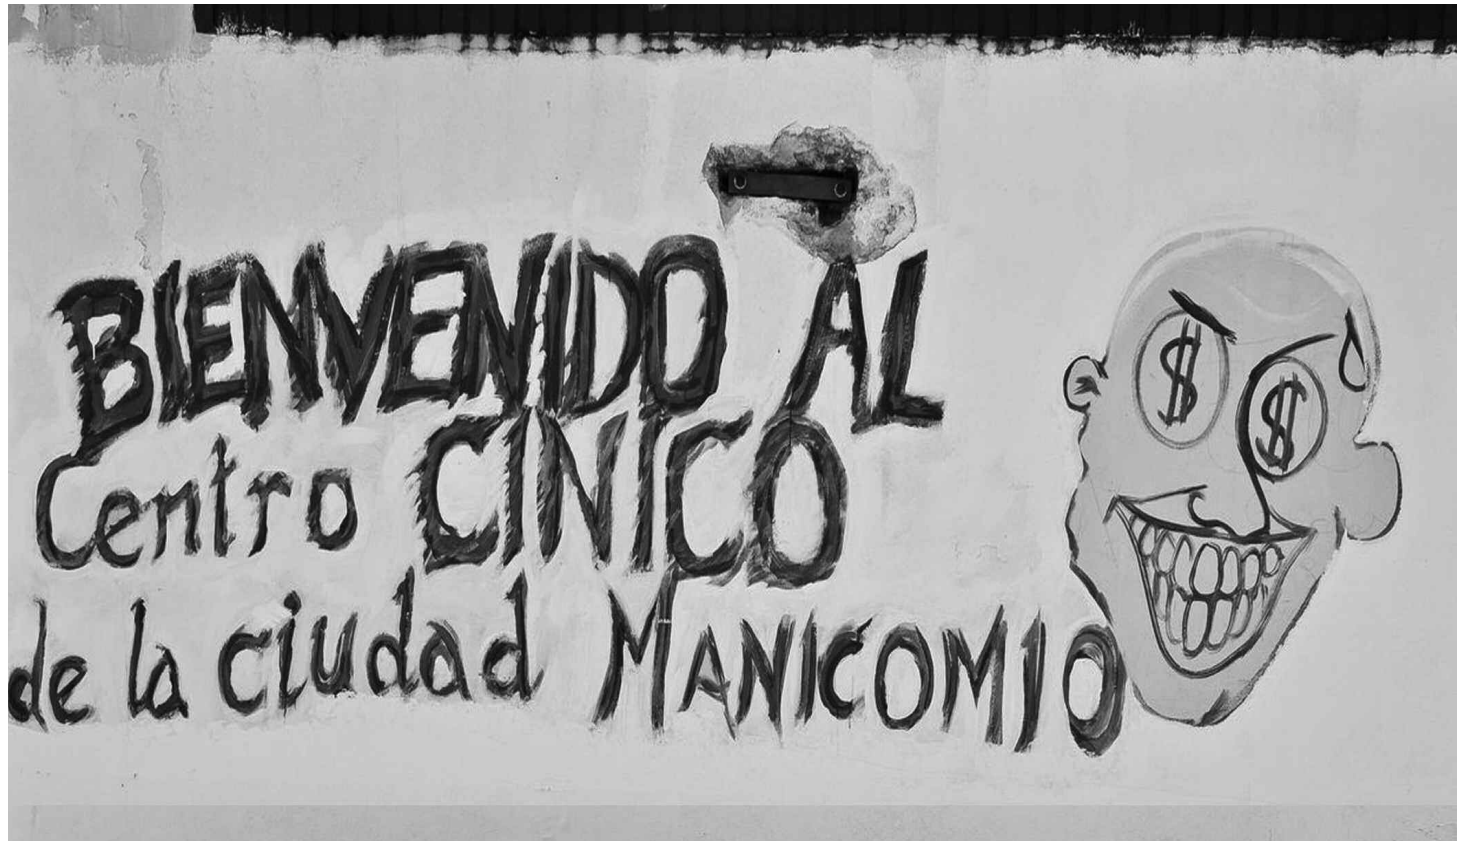 BIENVENIDO AL
Centro CINICO
de la ciudad MANICOMIO
$ $